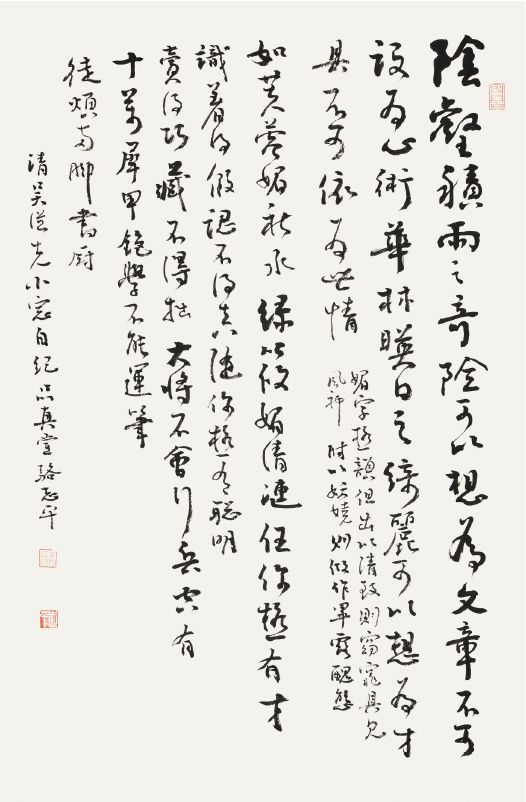 陰壑積雨之奇險可以想為文章不可
設為心術華林暎日之綺麗可以想為才
具不可依為世情
媚字極韻但出以清致則窈窕具見
風神附以妖嬈則做作畢露醜態
如芙蓉媚秋水綠筱媚清漣任你極有才
識着得假認不得真隨你極有聰明
賣得巧藏不得拙大將不會行兵空有
十萬犀甲飽學不能運筆
徒煩兩脚書厨
清吴從先小窓自紀品真堂駱志平